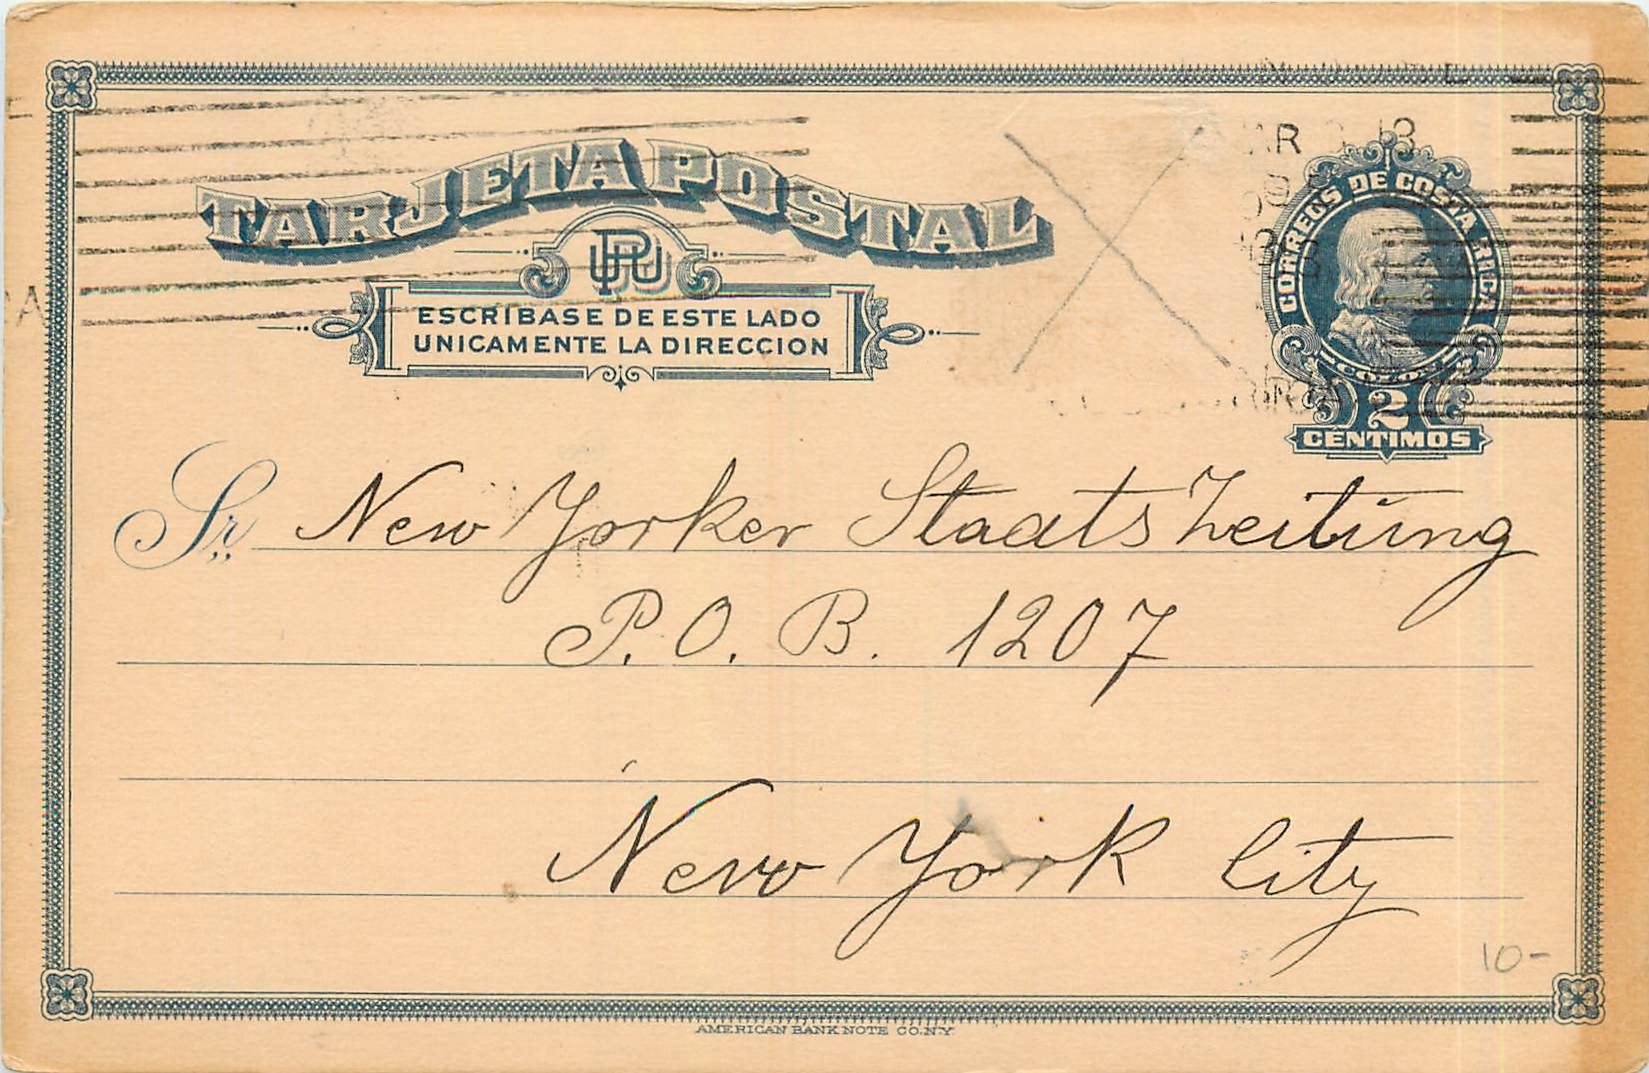 TARJETA POSTAL
UPU
ESCRIBASE DE ESTE LADO
UNICAMENTE LA DIRECCION
CORREOS DE COSTA RICA
COLON
2
CENTIMOS
Sr. New Yorker Staats Zeitung
P.O.B. 1207
New York City
10-
AMERICAN BANK NOTE CO. N.Y.